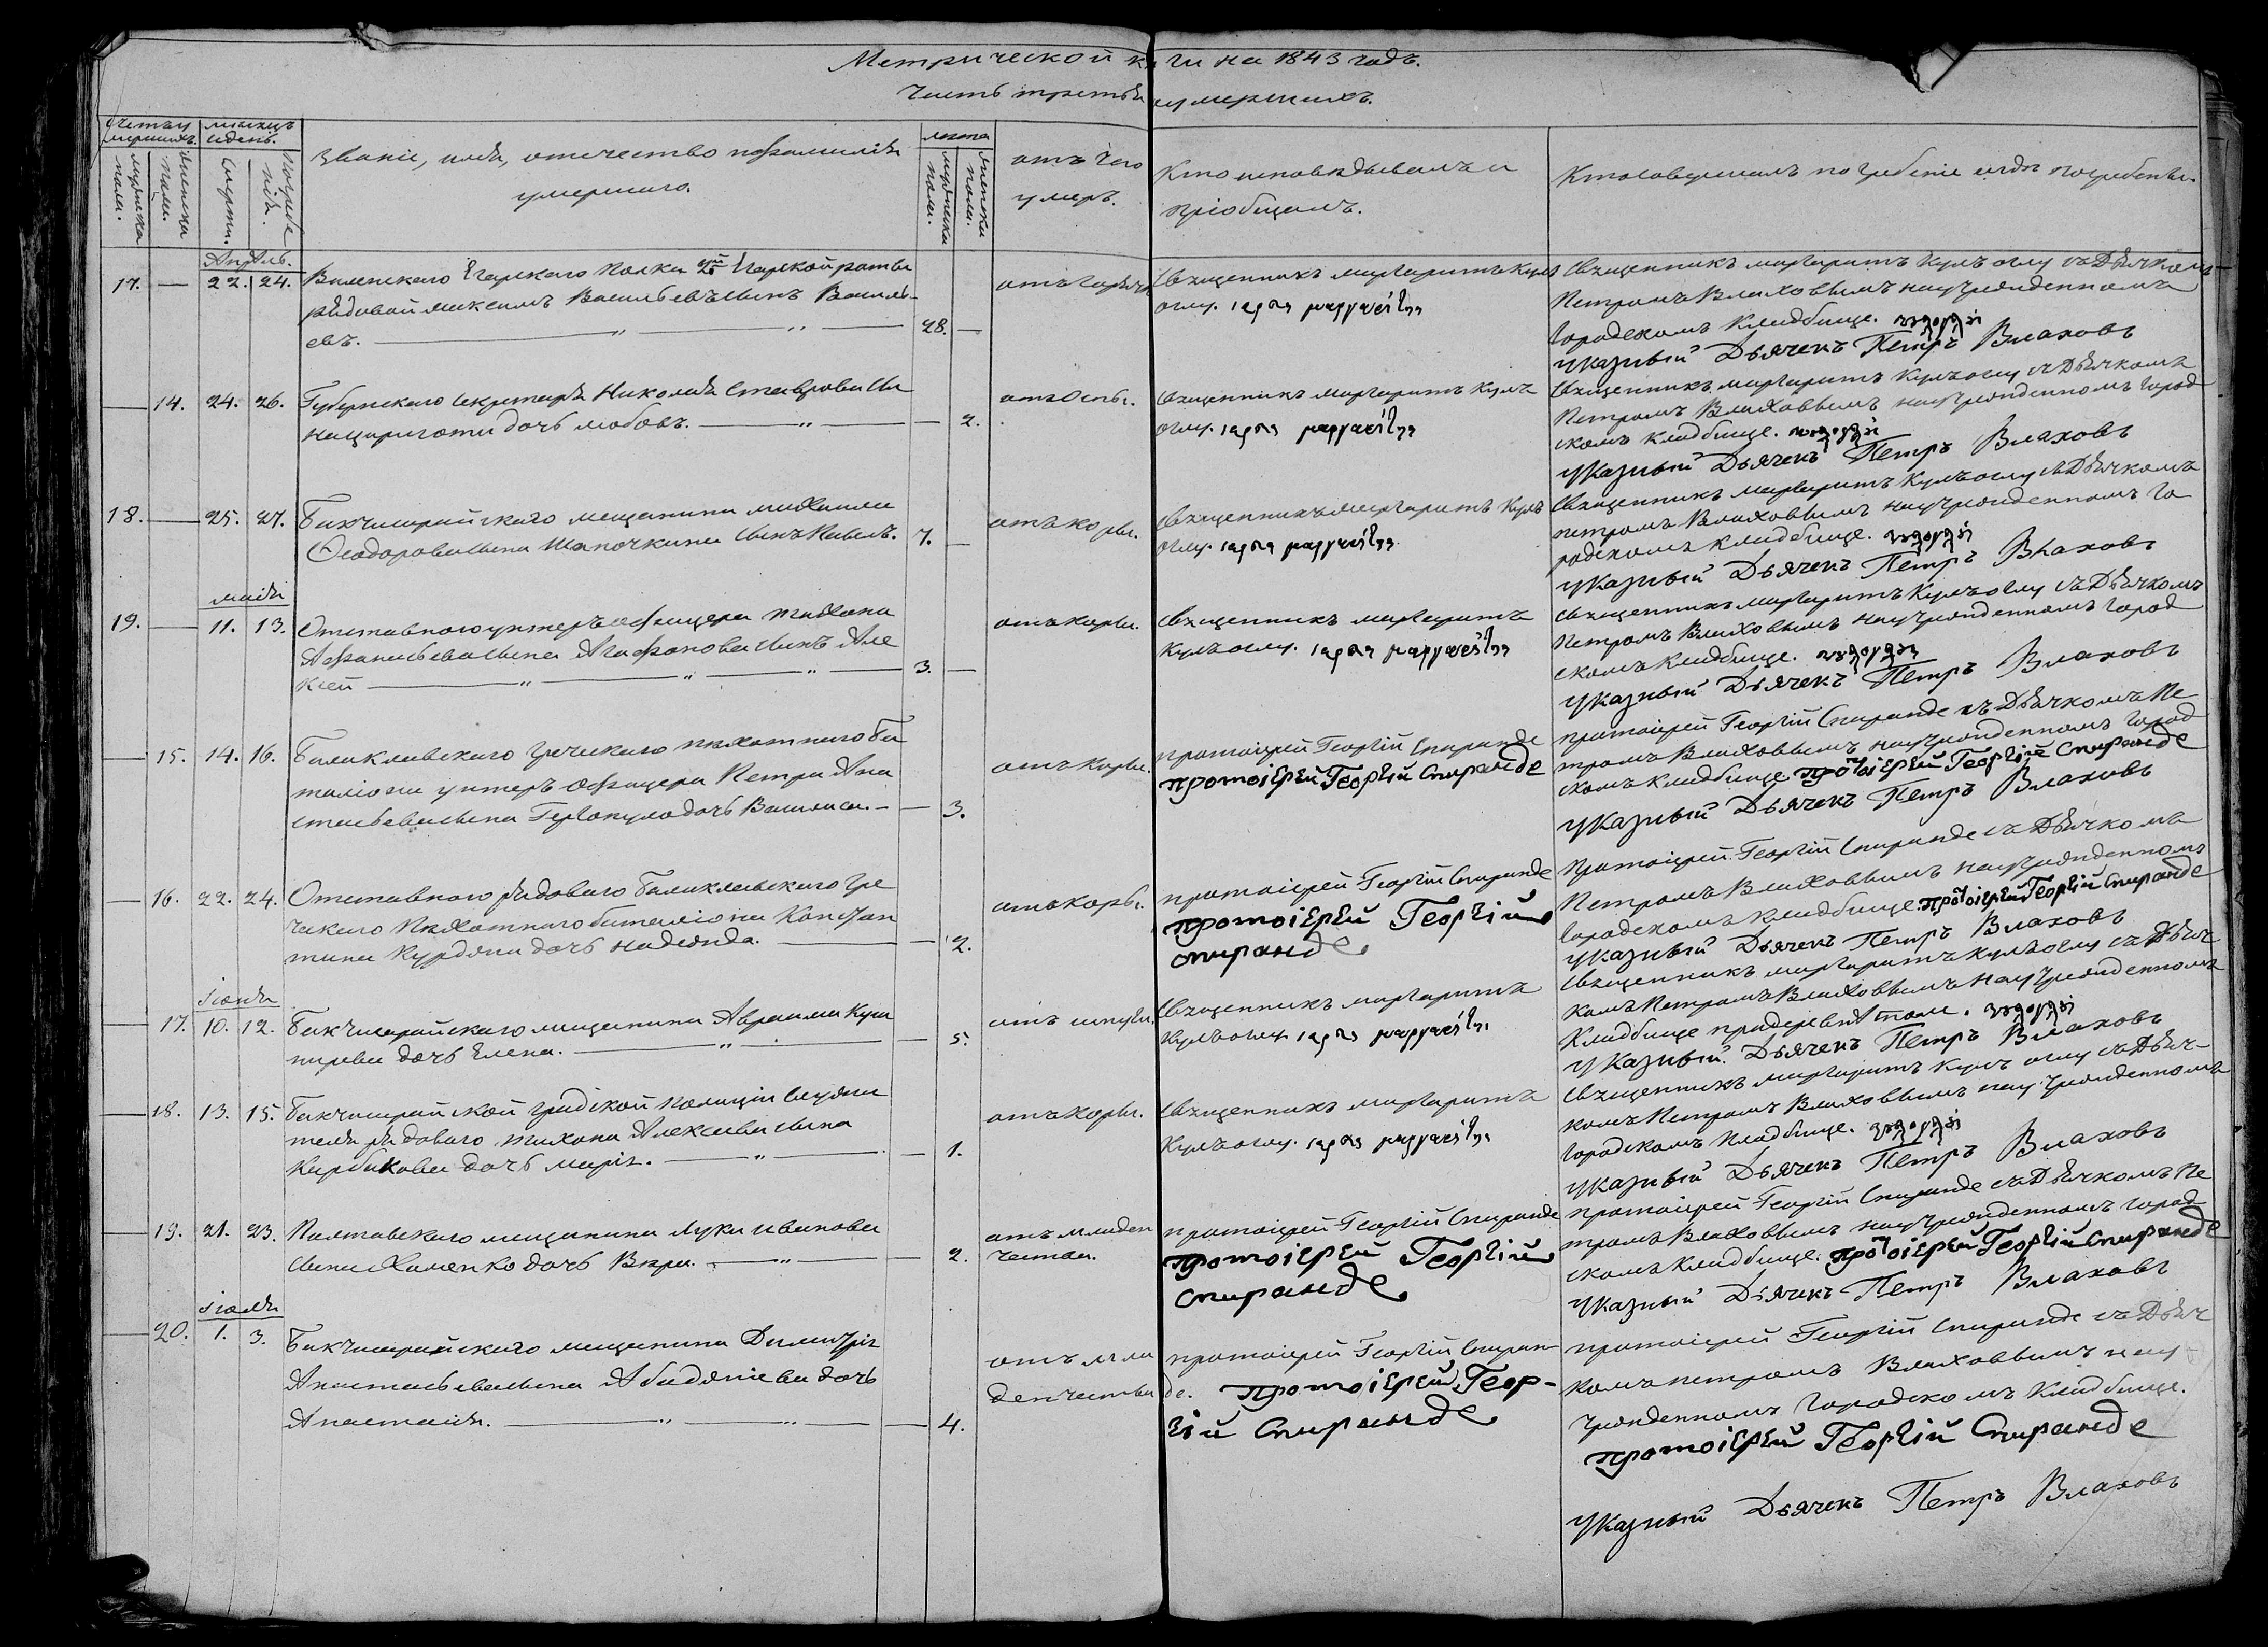 Метрической книги на 1843 годъ.
Часть третья умершихъ.
Счетъ умершихъ.
мужеска пола.
женска пола.
мѣсяцъ и день.
смерти.
погребенія.
Званіе, имя, отчество и фамилія
умершаго.
лета
мужеска пола.
женска пола.
отъ чего
умеръ.
Кто исповѣдывалъ и
пріобщалъ.
Кто совершалъ погребеніе и гдѣ погребены.
Апрѣль.
17. — 22. 24. Виленскаго Егарскаго полка 2й Егарской роты
рядовой Максимъ Васильевъ сынъ Василь-
евъ. 28. —
отъ горяч
Священникъ Маргаритъ Кулъ
оглу.
Священникъ Маргаритъ Кулъ оглу съ Дьячкомъ
Петромъ Влаховымъ на учрежденномъ
городскомъ кладбище.
указный Дьячекъ Петръ Влаховъ
— 14. 24. 26. Губернскаго секретаря Николая Ставрова сы
на дочь Любовь. — 2.
отъ оспы.
Священникъ Маргаритъ Кулъ
оглу.
Священникъ Маргаритъ Кулъ оглу съ Дьячкомъ
Петромъ Влаховымъ на учрежденномъ город
скомъ кладбище.
указный Дьячекъ Петръ Влаховъ
18. — 25. 27. Бакчисарайскаго мещанина Михаила
Феодорова сына Шапочкина сынъ Павелъ. 7. —
отъ коры.
Священникъ Маргаритъ Кулъ
оглу.
Священникъ Маргаритъ Кулъ оглу съ Дьячкомъ
Петромъ Влаховымъ на учрежденномъ го
родскомъ кладбище.
указный Дьячекъ Петръ Влаховъ
маія
19. — 11. 13. Отставного унтеръ офицера Тихона
Афанасьева сына Агафонова сынъ Але
ксей 3. —
отъ коры.
Священникъ Маргаритъ
Кулъ оглу.
Священникъ Маргаритъ Кулъ оглу съ Дьячкомъ
Петромъ Влаховымъ на учрежденномъ город
скомъ кладбище.
указный Дьячекъ Петръ Влаховъ
— 15. 14. 16. Балаклавского греческаго пѣхотнаго ба
таліона унтеръ офицера Петра Ана
стасьева сына дочь Василиса. — 3.
отъ коры.
протоіерей Георгій Спиранде
протоіерей Георгій Спиранде
протоіерей Георгій Спиранде съ Дьячкомъ Пе
тромъ Влаховымъ на учрежденномъ город
скомъ кладбище протоіерей Георгій Спиранде
указный Дьячекъ Петръ Влаховъ
— 16. 22. 24. Отставного рядового Балаклавского гре
ческаго пѣхотного баталіона Констан
тина Курдяна дочь Надежда. — 2.
отъ коры.
протоіерей Георгій Спиранде
протоіерей Георгій
Спиранде
Протоіерей Георгій Спиранде съ Дьячкомъ
Петромъ Влаховымъ на учрежденномъ
городскомъ кладбище. протоіерей Георгій Спиранде
указный Дьячекъ Петръ Влаховъ
Іюня
— 17. 10. 12. Бакчисарайскаго мещанина Авраама
дочь Елена. — 5.
отъ
Священникъ Маргаритъ
Кулъ оглу.
Священникъ Маргаритъ Кулъ оглу съ Дьяч
комъ Петромъ Влаховымъ на учрежденномъ
кладбище при деревнѣ
указный Дьячекъ Петръ Влаховъ
— 18. 13. 15. Бакчисарайской градской полиціи служи
теля рядового Тихона Алексѣева сына
Карбикова дочь Марія. — 1.
отъ коры.
Священникъ Маргаритъ
Кулъ оглу.
Священникъ Маргаритъ Кулъ оглу съ Дьяч-
комъ Петромъ Влаховымъ на учрежденномъ
городскомъ кладбище.
указный Дьячекъ Петръ Влаховъ
— 19. 21. 23. Полтавского мещанина Луки Иванова
сына Хоменко дочь Вѣра. — 2.
отъ младен
чества.
протоіерей Георгій Спиранде
протоіерей Георгій
Спиранде
протоіерей Георгій Спиранде съ Дьячкомъ Пе
тромъ Влаховымъ на учрежденномъ город
скомъ кладбище. протоіерей Георгій Спиранде
указный Дьячекъ Петръ Влаховъ
Іюля
— 20. 1. 3. Бакчисарайскаго мещанина Димитрія
Анастасьева сына дочь
Анастасія. — 4.
отъ мла
денчества
протоіерей Георгій Спиран
де. протоіерей Геор-
гій Спиранде
протоіерей Георгій Спиранде съ Дьяч
комъ Петромъ Влаховымъ на у-
чрежденномъ городскомъ кладбище.
протоіерей Георгій Спиранде
указный Дьячекъ Петръ Влаховъ